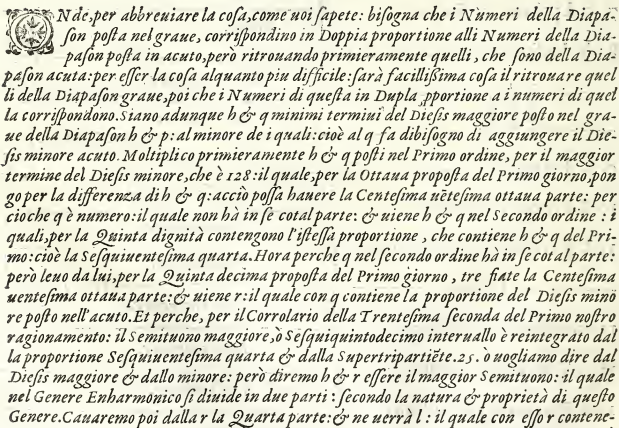 ONde, per abbreuiare la cosa, come uoi sapete: bisogna che i Numeri della Diapa-
son posta nel graue, corrispondino in Doppia proportione alli Numeri della Dia-
pason posta in acuto, però ritrouando primieramente quelli, che sono della Dia-
pason acuta: per esser la cosa alquanto piu difficile: sarà facillißima cosa il ritrouare quel
li della Diapason graue, poi che i Numeri di questa in Dupla ꝓportione a i numeri di quel
la corrispondono. Siano adunque h & q minimi termini del Diesis maggiore posto nel gra-
ue della Diapason h & p: al minore de i quali: cioè al q fa dibisogno di aggiungere il Die-
sis minore acuto. Moltiplico primieramente h & q posti nel Primo ordine, per il maggior
termine del Diesis minore, che è 128: il quale, per la Ottaua proposta del Primo giorno, pon
go per la differenza di h & q: acciò possa hauere la Centesima uētesima ottaua parte: per
cioche q è numero: il quale non hà in se cotal parte: & uiene h & q nel Secondo ordine: i
quali, per la Quinta dignità contengono l'istessa proportione, che contiene h & q del Pri-
mo: cioè la Sesquiuentesima quarta. Hora perche q nel secondo ordine hà in se cotal parte:
però leuo da lui, per la Quinta decima proposta del Primo giorno, tre fiate la Centesima
uentesima ottaua parte: & uiene r: il quale con q contiene la proportione del Diesis mino
re posto nell'acuto. Et perche, per il Corrolario della Trentesima seconda del Primo nostro
ragionamento: il Semituono maggiore, ò Sesquiquintodecimo interuallo è reintegrato dal
la proportione Sesquiuentesima quarta & dalla Supertripartiēte. 25. o uogliamo dire dal
Diesis maggiore & dallo minore: però diremo h & r essere il maggior Semituono: il quale
nel Genere Enharmonico si diuide in due parti: secondo la natura & proprietà di questo
Genere. Cauaremo poi dalla r la Quarta parte: & ne uerrà l: il quale con esso r contene-